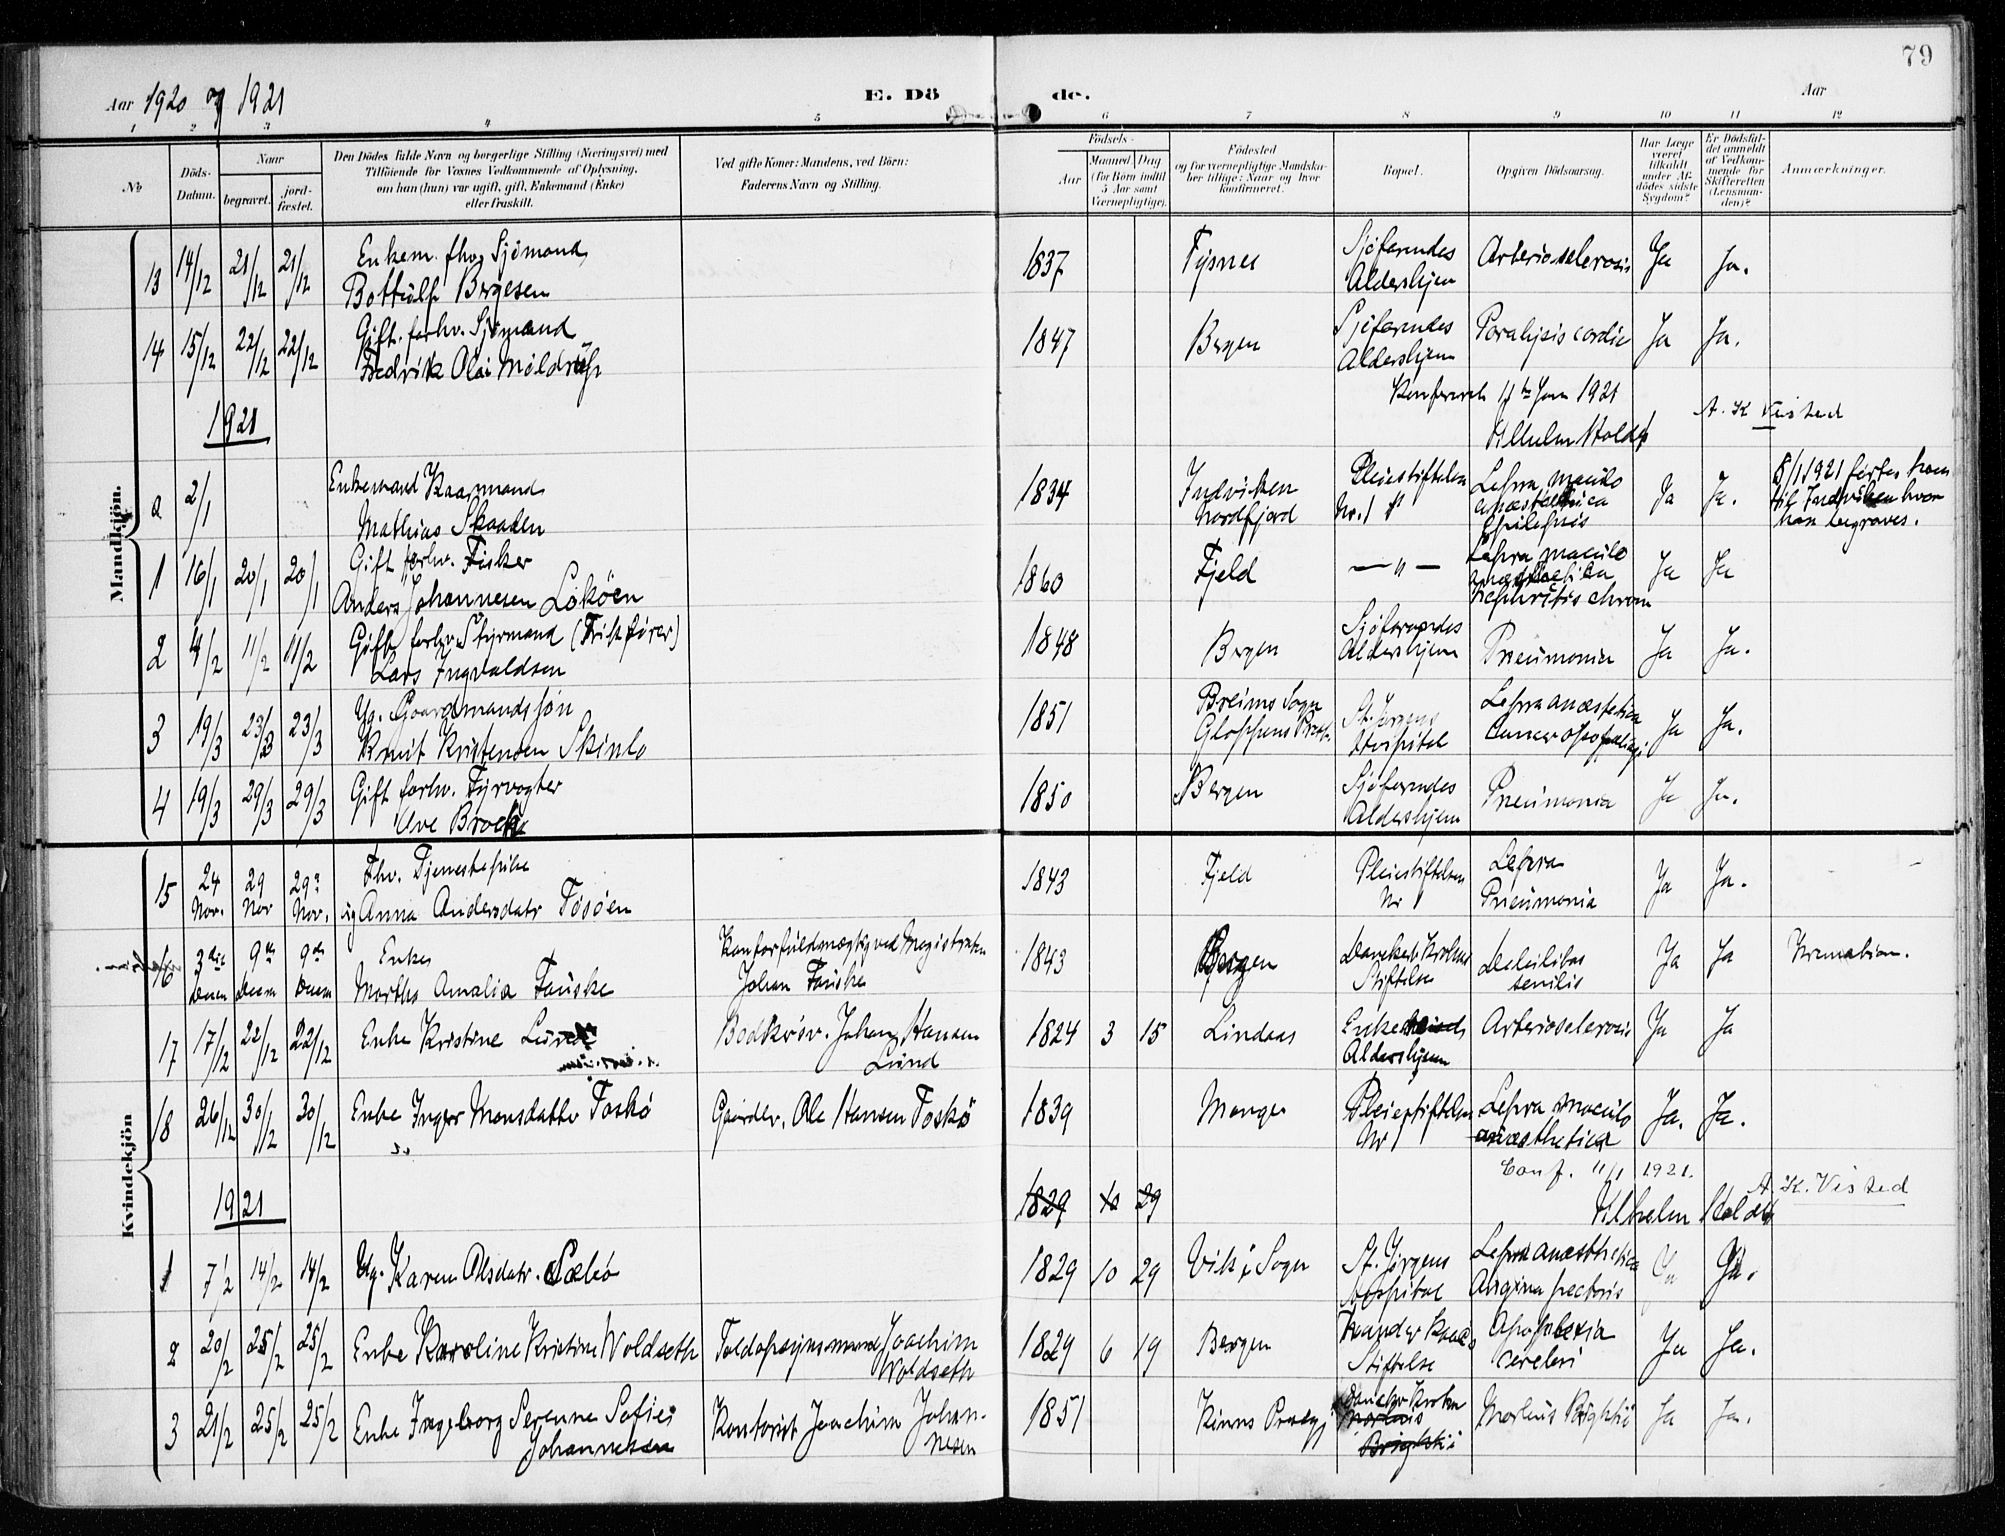 79
Aar 1920 og 1921
E. Dö
de.
Aar
1 2 3 4 5 6 7 8 9 10 11 12
No
Döds-
Datum.
Naar
begravet.
jord-
fæstet.
Den Dödes fulde Navn og borgerlige Stilling (Næringsvei) med
Tilföiende for Voxnes Vedkommende af Oplysning,
om han (hun) var ugift, gift, Enkemand (Enke)
eller fraskilt.
Ved gifte Koner: Mandens, ved Börn:
Faderens Navn og Stilling.
Födsels-
Aar
Maaned
Dag
(for Börn indtil
5 Aar samt
Værnepligtige).
Födested
og for værnepligtige Mandska-
ber tillige: Naar og hvor
konfirmeret.
Bopæl.
Opgiven Dödsaarsag.
Har Læge
været
tilkaldt
under Af-
dödes sidste
Sygdom?
Er Dödsfal-
det anmeldt
af Vedkom-
mende for
Skifteretten
(Lensman-
den)?
Anmærkninger.
Mandkjön.
13 14/12 21/12 21/12 Enkem. fhv. Sjömand
Bottulf Børgesen
1837 Tysnes Sjöfarendes
Aldershjem Arteriosclerosis Ja Ja.
14 15/12 22/12 22/12 Gift. forhv. Sjömand
Fredrik Olai Møldrup
1847 Bergen Sjöfarendes
Aldershjem Paralysis cordis Ja Ja.
1921
Konfereret 11te Jan 1921
Vilhelm Koldrup A. K Visted
a 2/1 Enkemand Kaarmand
Mathias Skaaden
1834 Indviken
Nordfjord Pleiestiftelsen
Nr. 1 Lepra maculo
anæsthetica
Epilepsis Ja Ja. 8/1 1921 førtes ham
til Indviken hvor
han begraves.
1 16/1 20/1 20/1 Gift forhv. Fisker
Anders Johannesen Løköen
1860 Fjeld — " — Lepra maculo
anæsthetica
Nephritis chron Ja Ja
2 4/2 11/2 11/2 Gift forhv. Styrmand
Lars Ingvaldsen
1848 Bergen Sjöfarendes
Aldershjem Pneumonia Ja Ja.
3 19/3 23/3 23/3 Ug. Gaardmandssøn
Knut Kristensen Skinlo
1851 Breims Sogn
Gloppens St. Jørgens
Hospital Lepra anæstetica
Cancer oesophagi Ja Ja.
4 19/3 29/3 29/3 Gift forhv. Fyrvogter
Ove Brock
1850 Bergen Sjöfarendes
Aldershjem Pneumonia Ja Ja.
Kvindekjön
15 24
Nov. 29
Nov 29
Nov. Fhv. Tjenestepike
ug Anna Andersdatr Tösöen
1843 Fjeld Pleiestiftelsen
Nr 1 Lepra
Pneumonia Ja Ja.
16 3die
Decem 9de
Decem 9de
Decem Enke
Martha Amalia Fauske
Kontorfuldmægtig ved Magistraten
Johan Fauske
1843 Bergen Danckert Krohns
Stiftelse Debilitas
senilis Ja Ja Kremation.
17 17/12 22/12 22/12 Enke Kristine Lund
Johan Hansen
Lund
1824 3 15 Lindaas
Aldershjem Arteriosclerosis Ja Ja
18 26/12 30/12 30/12 Enke Inger Monsdatter Toskö
Gaardbr. Ole Hansen Toskö
1839 Manger Pleiestiftelsen
Nr 1 Lepra maculo
anæsthetica Ja. Ja.
1921
1829 10 29
Conf. 11/1 1921.
Vilhelm Koldrup A. K. Visted
1 7/2 14/2 14/2 Ug. Karen Olsdatr. Sæbö
1829 10 29 Vik i Sogn St. Jørgens
Hospital Lepra anæsthetica
Angina pectoris Ja Ja.
2 20/2 25/2 25/2 Enke Karoline Kristine Woldseth
Toldopsynsmand Joachim
Woldseth
1829 6 19 Bergen
Stiftelse Apoplexia
cerebri Ja Ja.
3 21/2 25/2 25/2 Enke Ingeborg Serenne Sofie
Johannesen
Kontorist Joachim Johan-
nesen
1851 Kinns Præstgj Danckert Krohn
Morbus
Brightii Morbus Brightii Ja Ja.